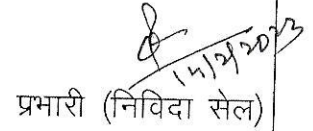 14/2/2023
प्रभारी (निविदा सेल)